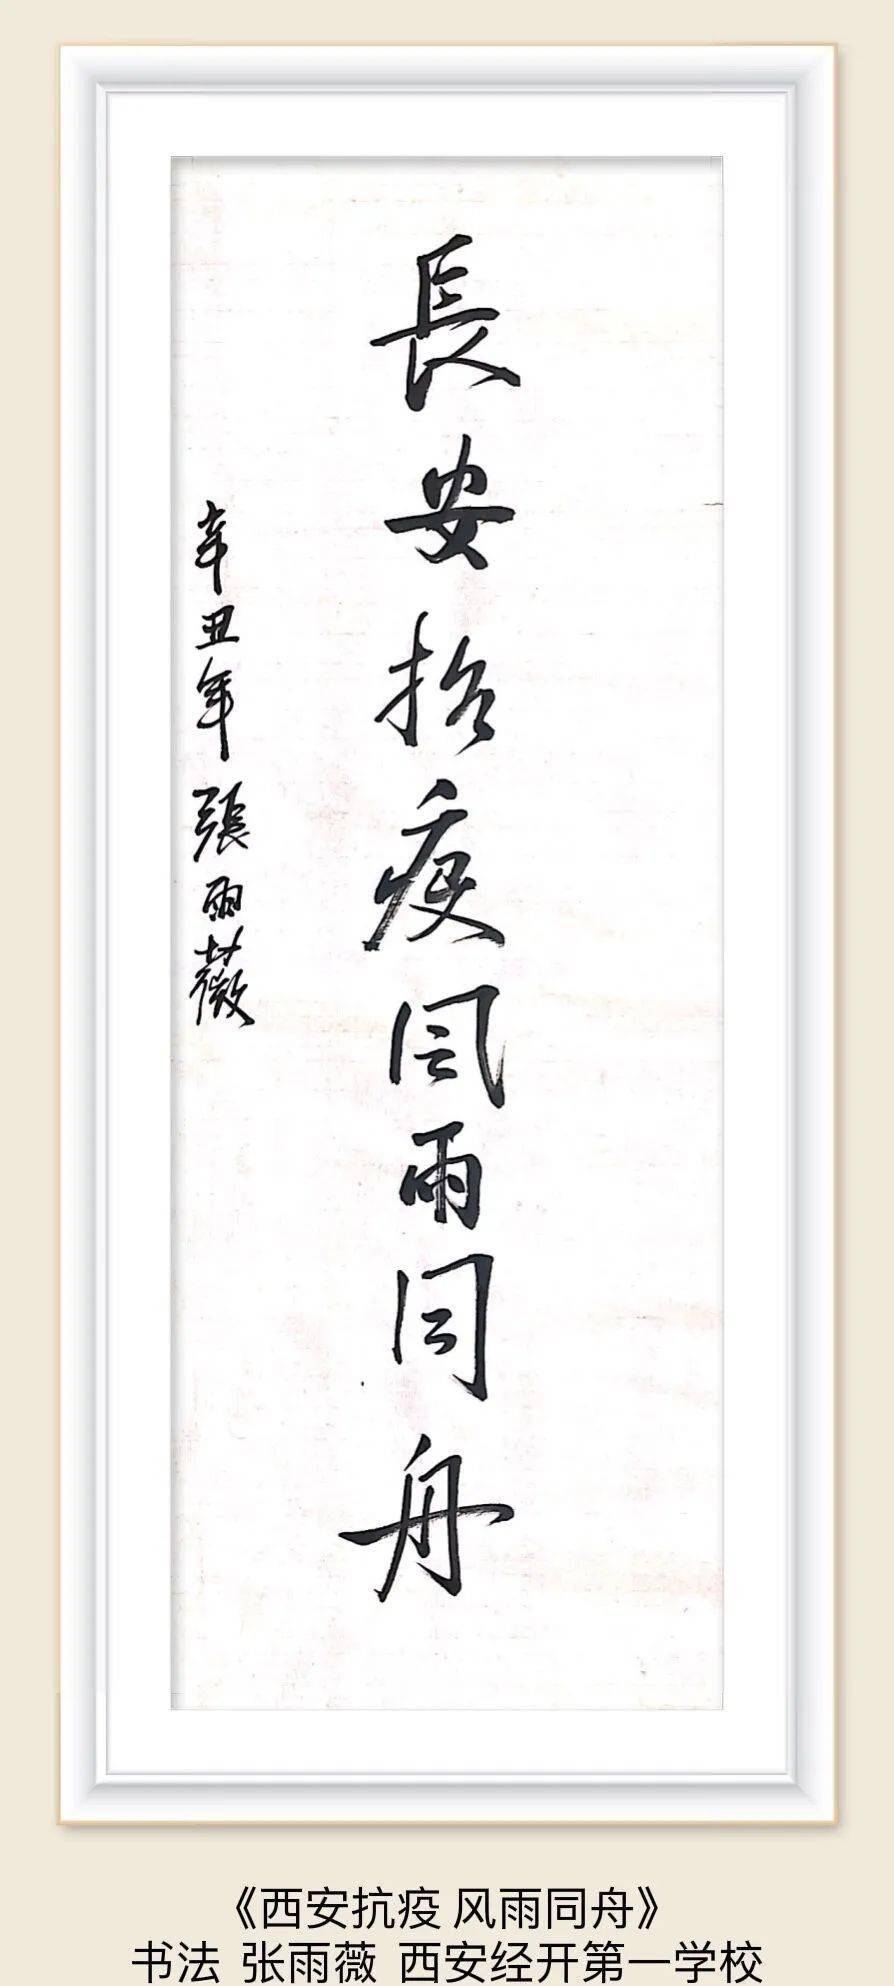 長安抗疫風雨同舟
辛丑年張雨薇
《西安抗疫 风雨同舟》
书法 张雨薇 西安经开第一学校